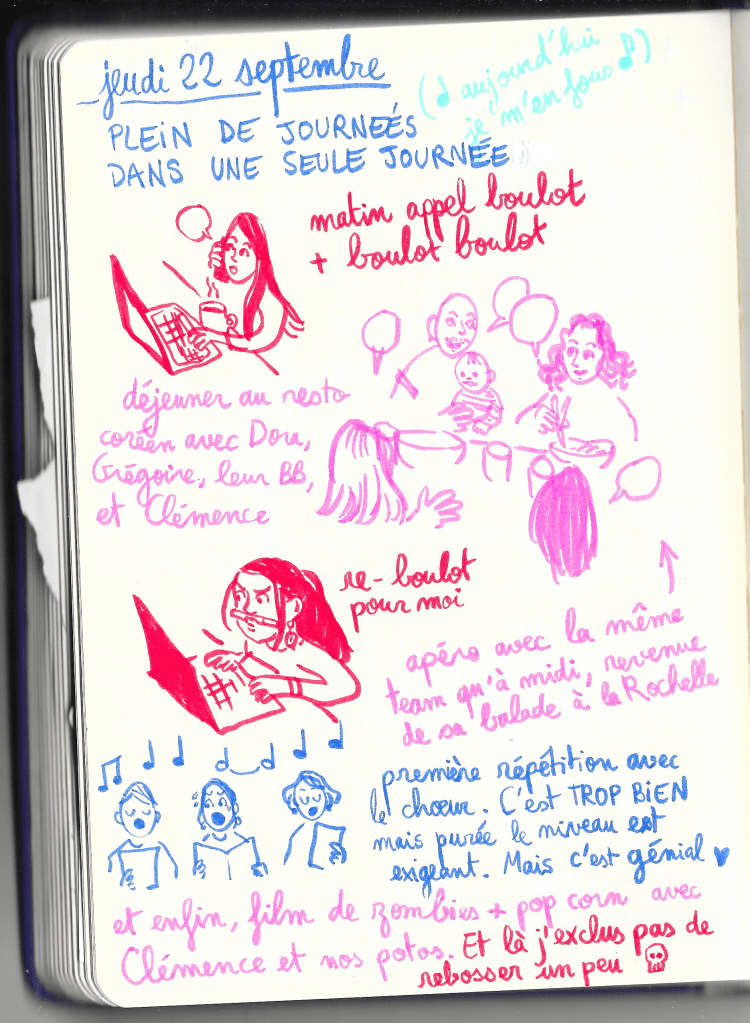 jeudi 22 septembre
(♩ aujourd'hui
je m'en fous ♪)
PLEIN DE JOURNEÉS
DANS UNE SEULE JOURNÉE
matin appel boulot
+ boulot boulot
déjeuner au resto
coréen avec Dou,
Grégoire, leur BB,
et Clémence
re-boulot
pour moi
apéro avec la même
team qu'à midi, revenue
de sa balade à la Rochelle
première répétition avec
le chœur. C'est TROP BiEN
mais purée le niveau est
exigeant. Mais c'est génial ♥
et enfin, film de zombies + pop corn avec
Clémence et nos potos. Et là j'exclus pas de
rebosser un peu